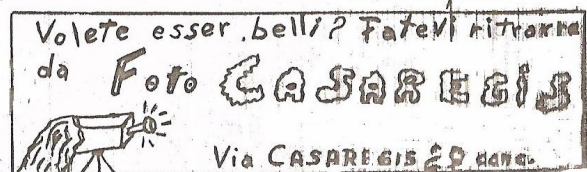 Volete esser belli? Fatevi ritrarre
da Foto CASAREGIS
Via CASAREGIS